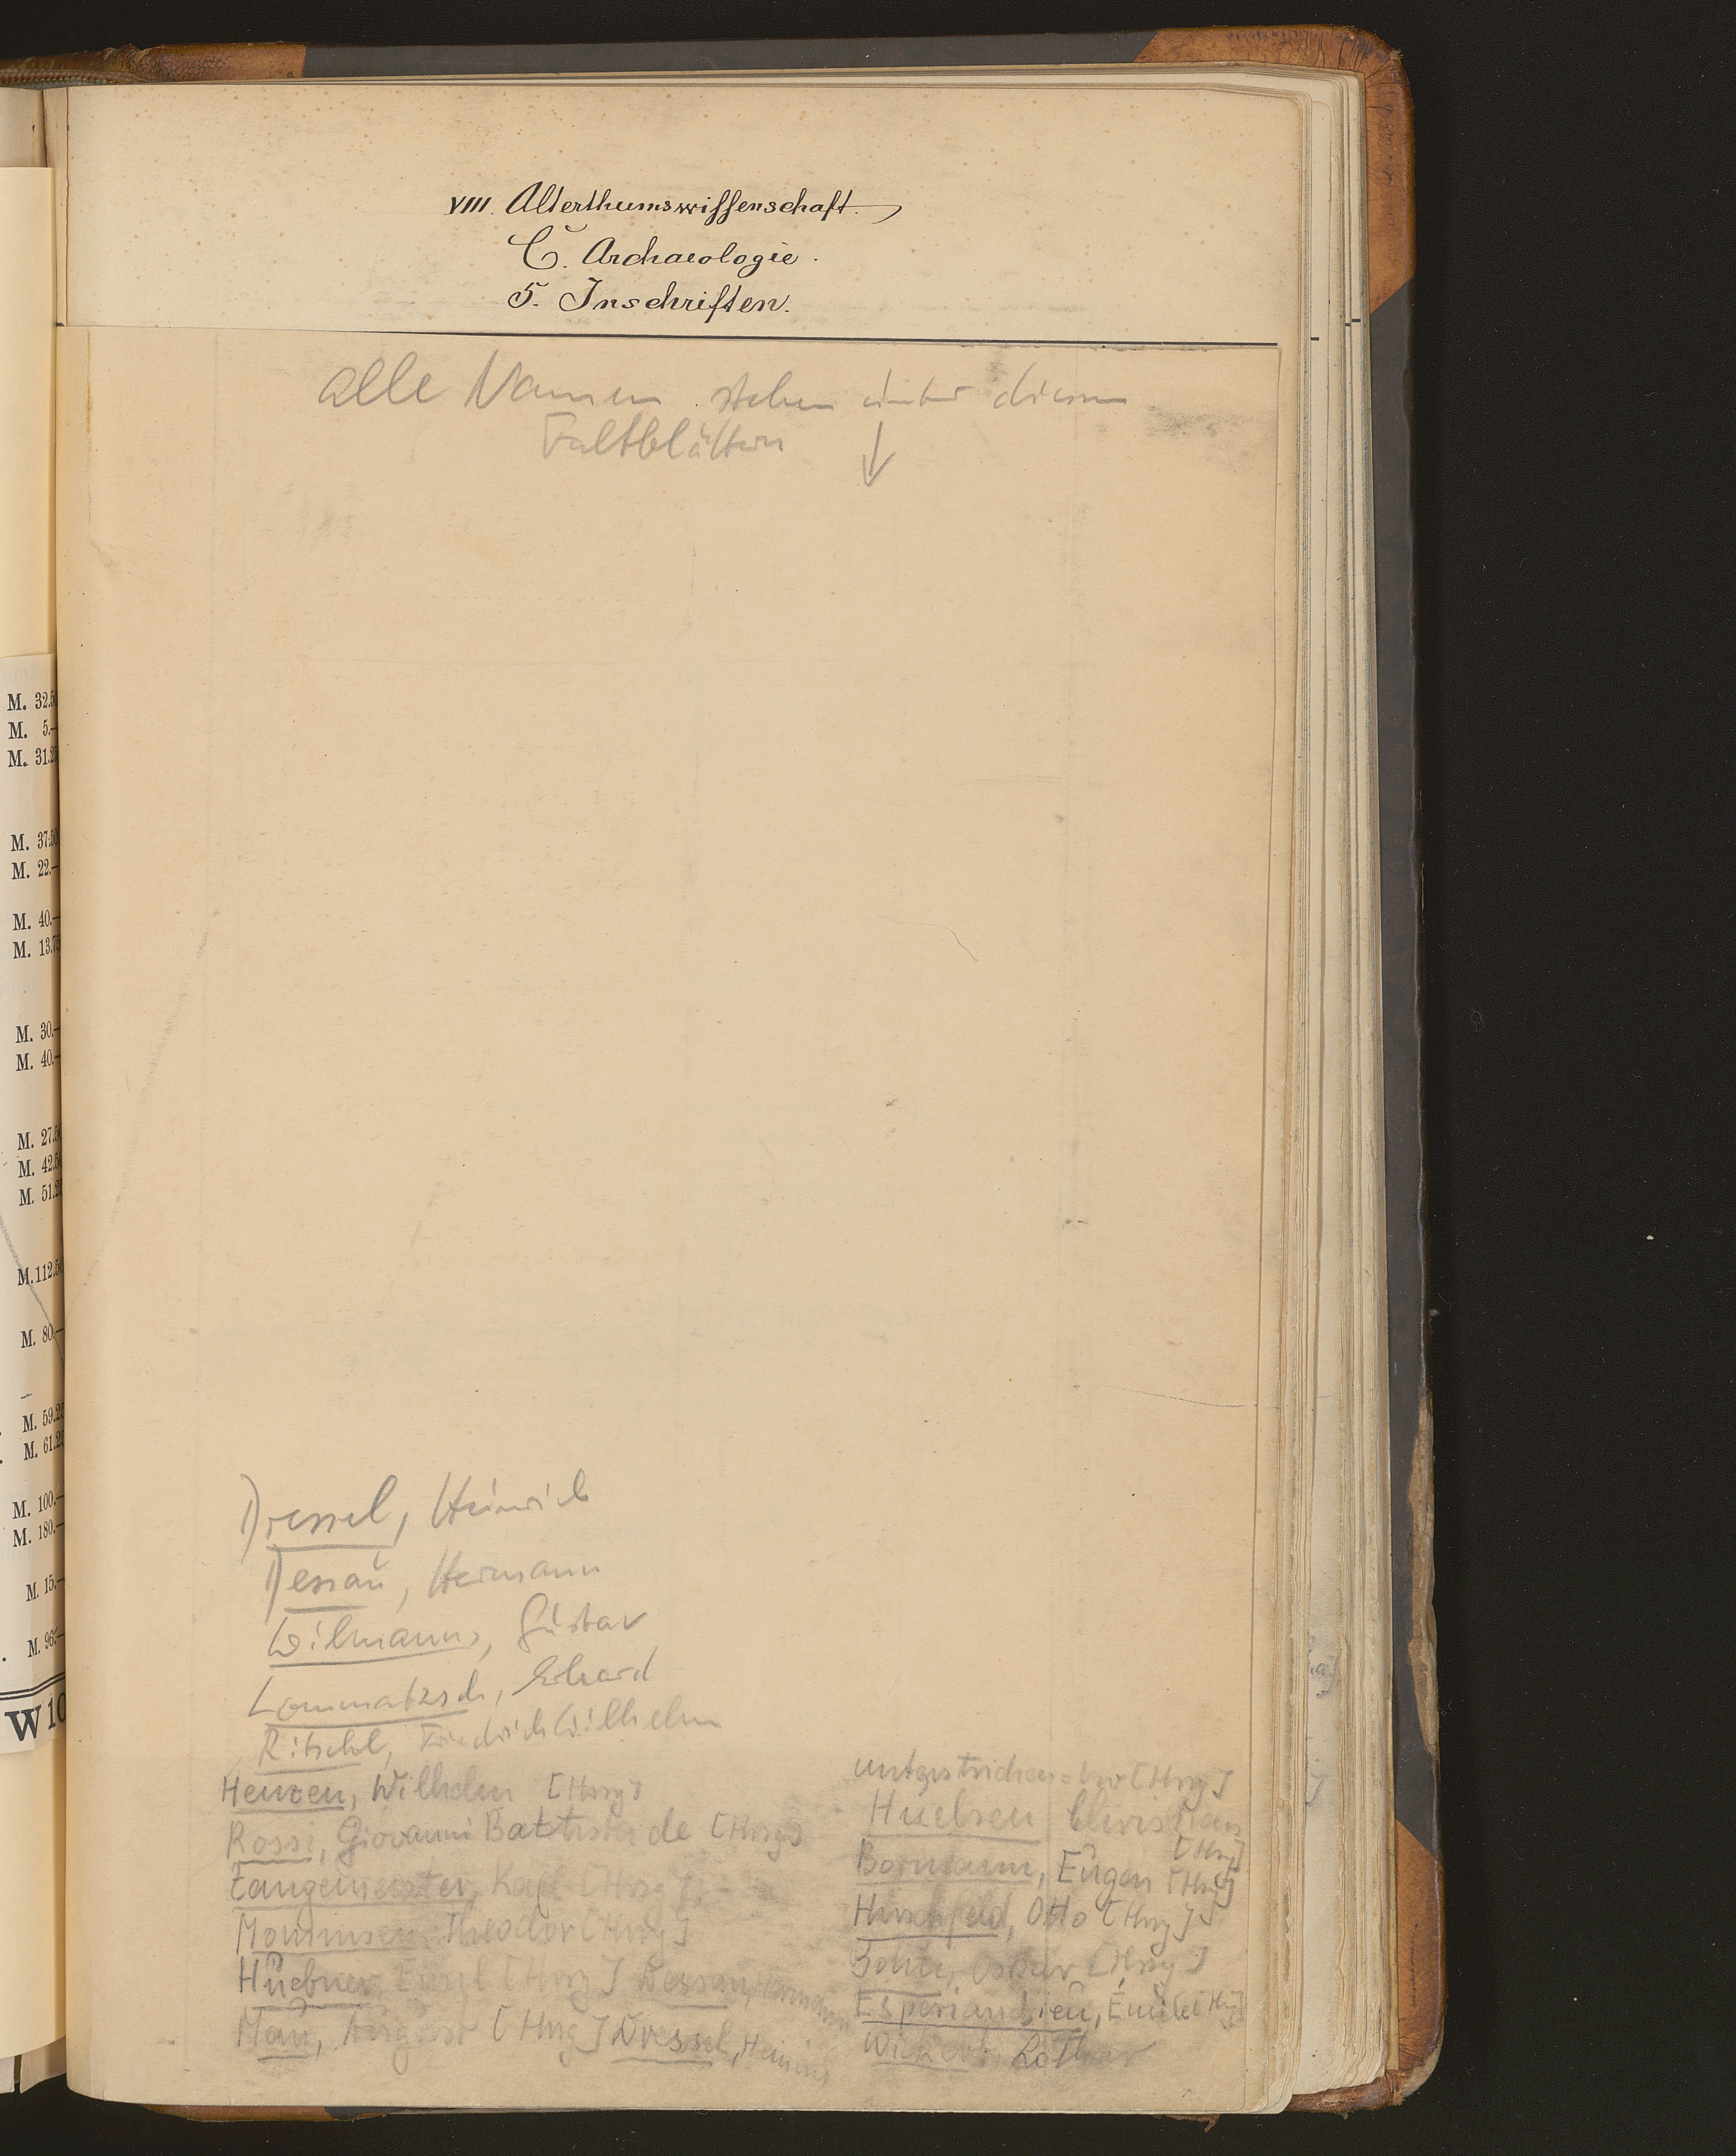 VIII. Alterthumswissenschaft.
C. Archaeologie.
5. Inschriften.
alle Namen stehen unter diesen
Faltblättern
Dressel, Heinrich
Dessau, Hermann
Wilmanns, Gustav
Lommatzsch, Erhard
Ritschl, Friedrich Wilhelm
Henzen, Wilhelm [Hrsg]
Rossi, Giovanni Battista de [Hrsg]
Zangemeister, Karl [Hrsg]
Mommsen, Theodor [Hrsg]
Huebner, Emil [Hrsg] Dessau, Hermann
Mau, August [Hrsg] Dressel, Heinrich
[Hrsg]
Huelsen, Christian
[Hrsg]
Bormann, Eugen [Hrsg]
Hirschfeld, Otto [Hrsg]
Bohn, Oskar [Hrsg]
Esperiandieu, Émile [Hrsg]
Wickert, Lothar
M. 32.5
M. 5.—
M. 31.2
M. 37.50
M. 22.—
M. 40.—
M. 13.75
M. 30.—
M. 40.—
M. 27.5
M. 42.5
M. 51.2
M. 112.50
M. 80.—
M. 59.25
M. 61.25
M. 100.—
M. 180.—
M. 15.—
M. 96.—
W 10